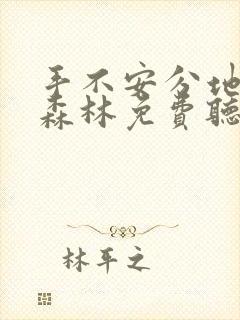 手不安分地
森林免费聽
林平之